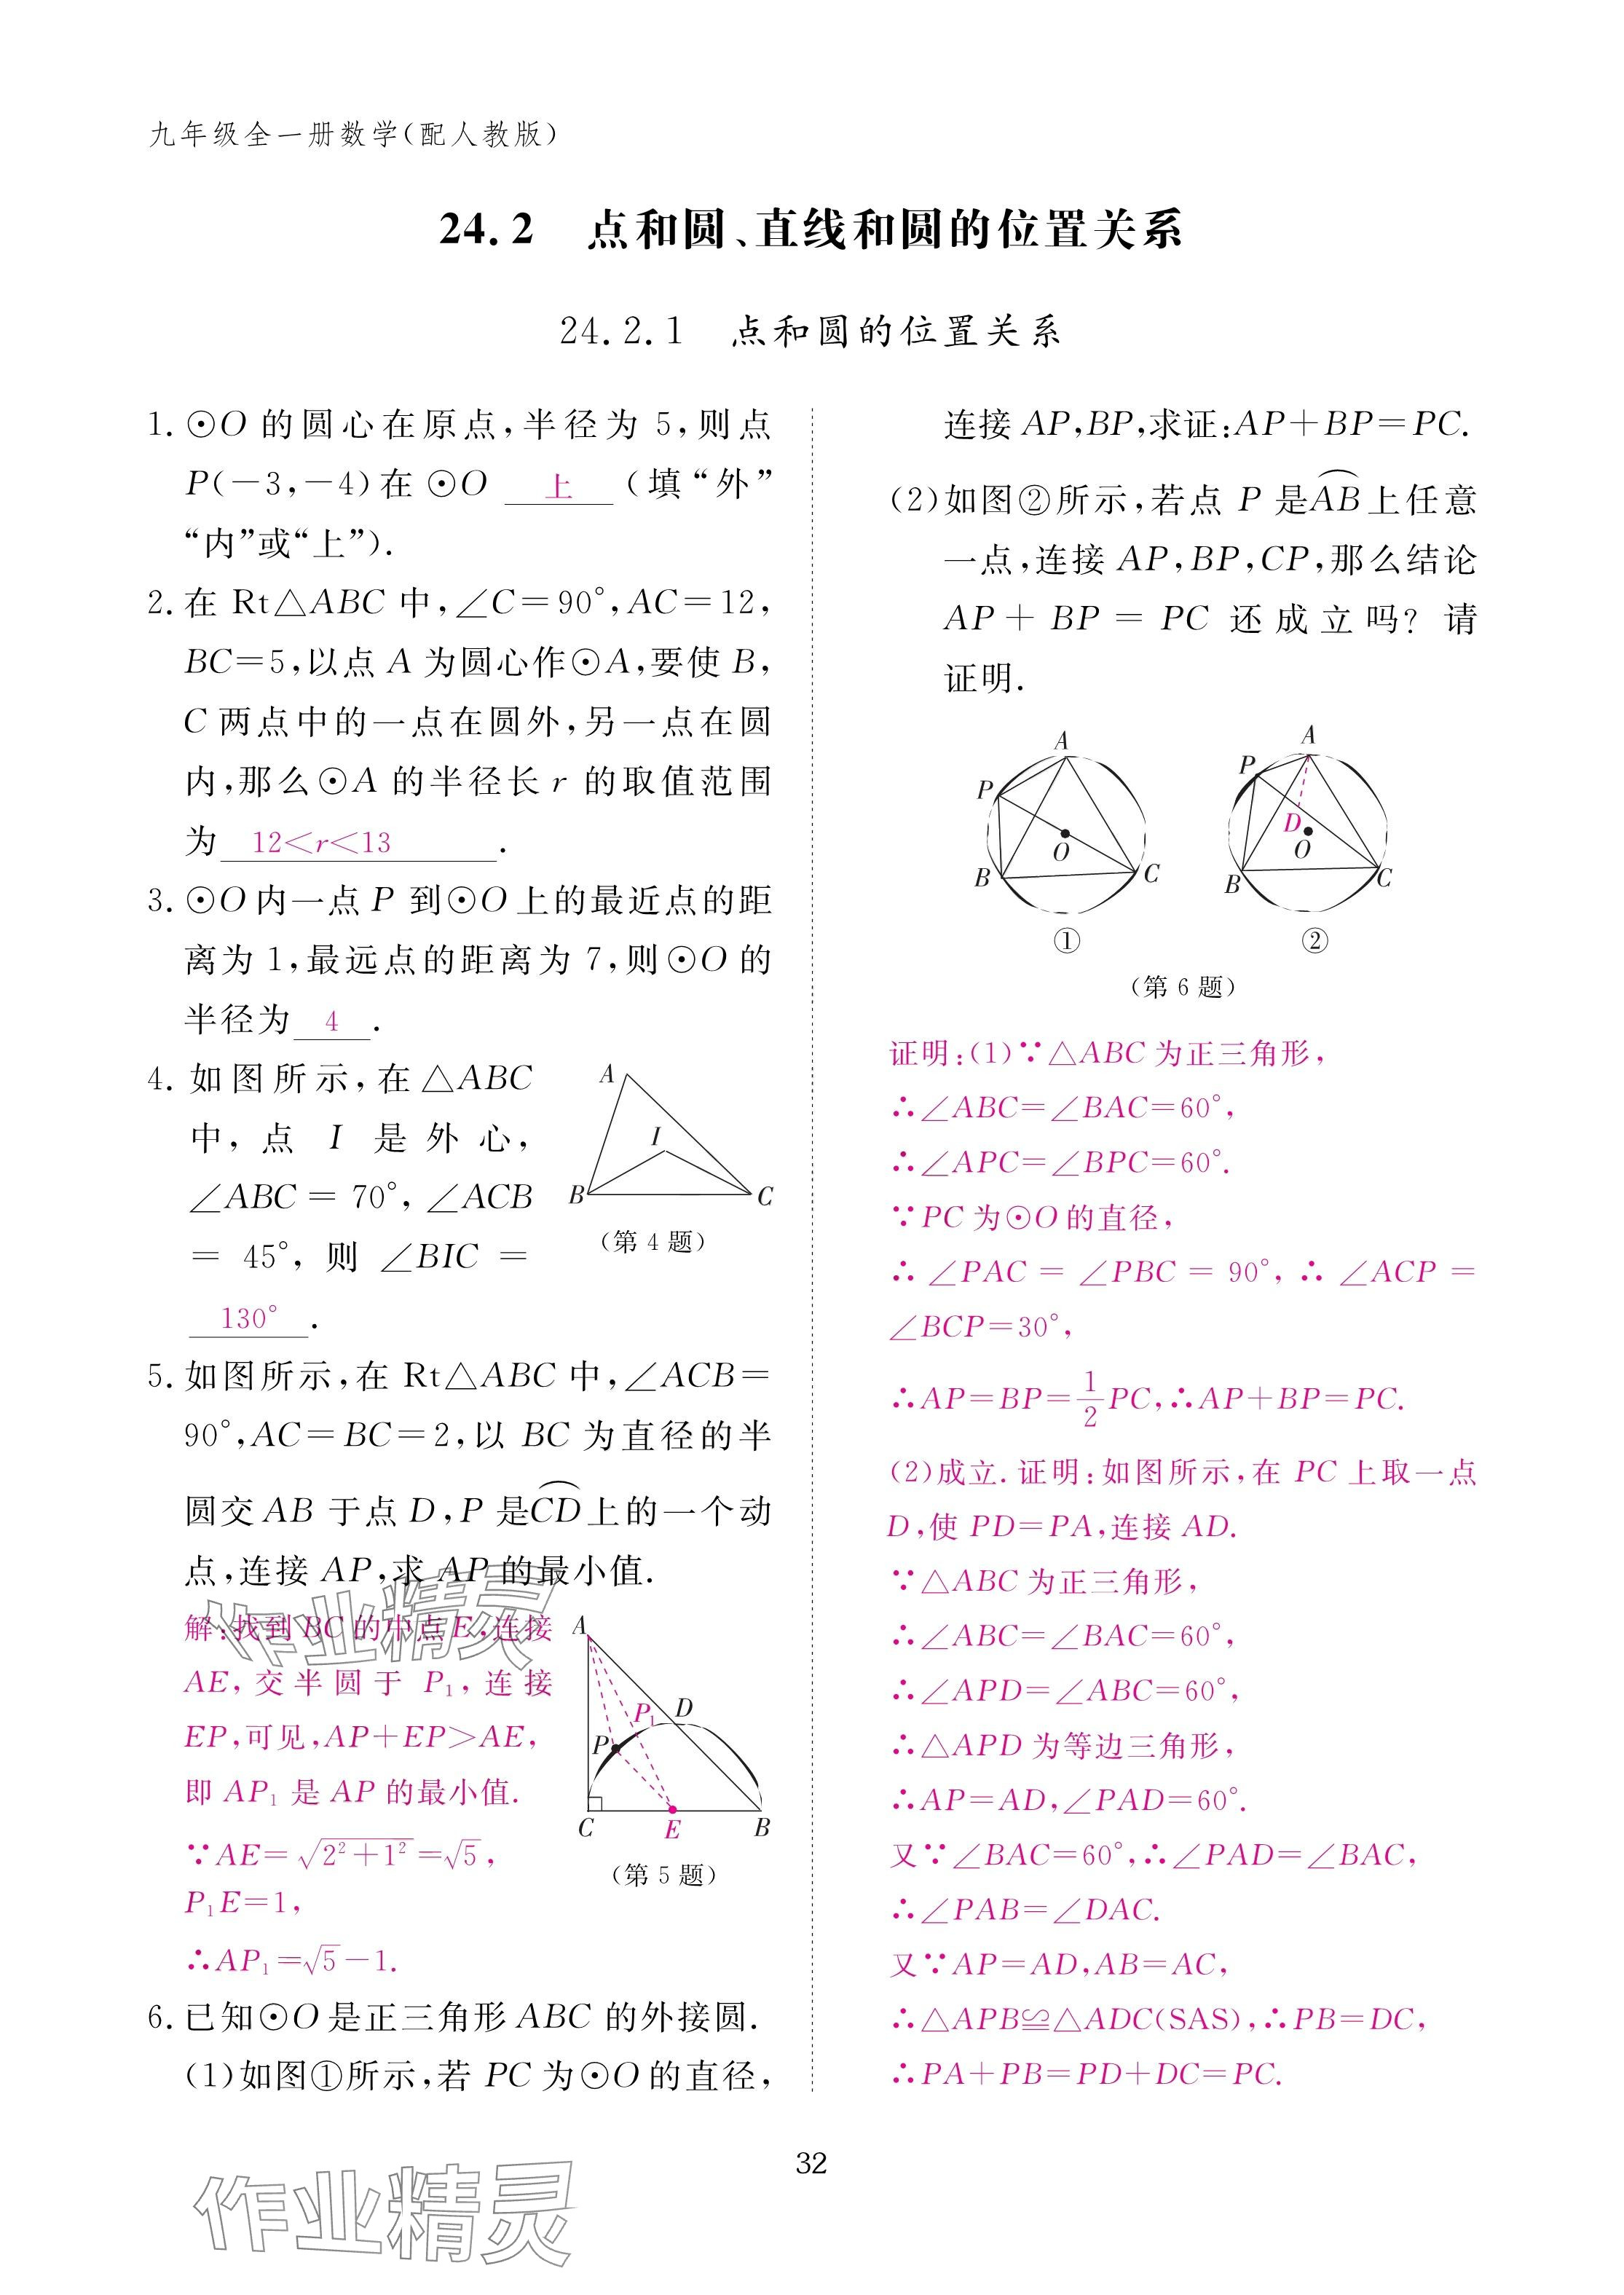 九年级全一册数学(配人教版)
24.2 点和圆、直线和圆的位置关系
24.2.1 点和圆的位置关系
1. ⊙O 的圆心在原点,半径为 5,则点
P(-3,-4)在 ⊙O 上 (填“外”
“内”或“上”).
2. 在 Rt△ABC 中,∠C=90°,AC=12,
BC=5,以点 A 为圆心作⊙A,要使 B,
C 两点中的一点在圆外,另一点在圆
内,那么⊙A 的半径长 r 的取值范围
为 12<r<13 .
3. ⊙O内一点 P 到⊙O 上的最近点的距
离为 1,最远点的距离为 7,则⊙O 的
半径为 4 .
4. 如图所示,在△ABC
中,点 I 是外心,
∠ABC = 70°,∠ACB
= 45°,则 ∠BIC =
130° .
A
I
B
C
(第 4 题)
5. 如图所示,在 Rt△ABC 中,∠ACB=
90°,AC=BC=2,以 BC 为直径的半
圆交AB 于点 D,P 是⌒CD上的一个动
点,连接 AP,求 AP 的最小值.
解:找到BC的中点E,连接
AE,交半圆于 P₁,连接
EP,可见,AP+EP>AE,
即 AP₁ 是 AP 的最小值.
∵AE=√(2²+1²)=√5,
P₁E=1,
∴AP₁=√5-1.
A
P₁
D
P
C
E
B
(第 5 题)
6. 已知⊙O是正三角形ABC 的外接圆.
(1)如图①所示,若 PC 为⊙O的直径,
连接 AP,BP,求证:AP+BP=PC.
(2)如图②所示,若点 P 是⌒AB上任意
一点,连接 AP,BP,CP,那么结论
AP+ BP = PC 还成立吗?请
证明.
A
P
O
B
C
①
A
P
D
O
B
C
②
(第 6 题)
证明:(1)∵△ABC 为正三角形,
∴∠ABC=∠BAC=60°,
∴∠APC=∠BPC=60°.
∵PC 为⊙O 的直径,
∴ ∠PAC = ∠PBC = 90°, ∴ ∠ACP =
∠BCP=30°,
∴AP=BP=1/2PC,∴AP+BP=PC.
(2)成立. 证明:如图所示,在 PC 上取一点
D,使 PD=PA,连接 AD.
∵△ABC 为正三角形,
∴∠ABC=∠BAC=60°,
∴∠APD=∠ABC=60°,
∴△APD 为等边三角形,
∴AP=AD,∠PAD=60°.
又∵∠BAC=60°,∴∠PAD=∠BAC,
∴∠PAB=∠DAC.
又∵AP=AD,AB=AC,
∴△APB≌△ADC(SAS),∴PB=DC,
∴PA+PB=PD+DC=PC.
作业精灵
32
作业精灵